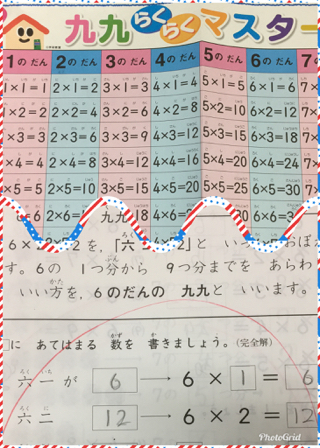 九九らくらくマスター
1のだん 2のだん 3のだん 4のだん 5のだん 6のだん 7の
1×1=1 2×1=2 3×1=3 4×1=4 5×1=5 6×1=6 7×
1×2=2 2×2=4 3×2=6 4×2=8 5×2=10 6×2=12 7×
1×3=3 2×3=6 3×3=9 4×3=12 5×3=15 6×3=18 7×
1×4=4 2×4=8 3×4=12 4×4=16 5×4=20 6×4=24 7×
×5=5 2×5=10 3×5=15 4×5=20 5×5=25 6×5=30 7×
=6 2×6= 九九 18 4×6= 6×6=3
6× を、「六 2」と いっ おぼ
す。6の 1つ分から 9つ分までを あらわ
いい方を、6のだんの 九九と いいます。
に あてはまる 数を 書きましょう。(完全解)
六一が 6 → 6 × 1 = 6
六二 12 → 6 × 2 = 12
PhotoGrid